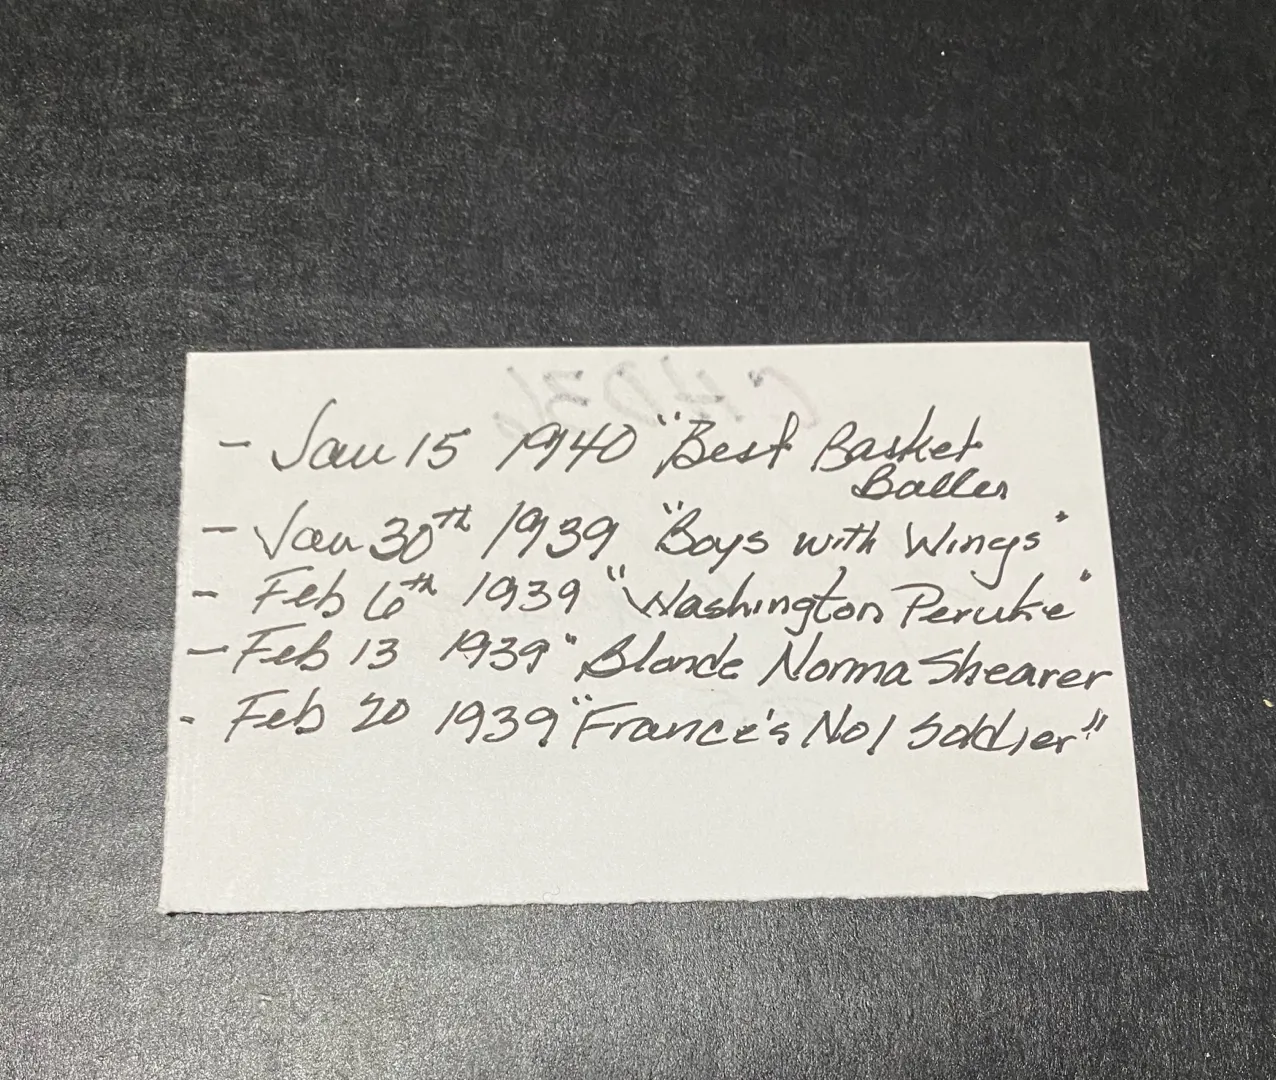 - Jan 15 1940 "Best Basket
Baller
- Jan 30th 1939 "Boys with Wings"
- Feb 6th 1939 "Washington Peruke"
- Feb 13 1939 "Blonde Norma Shearer
- Feb 20 1939 "France's No1 Soldier"